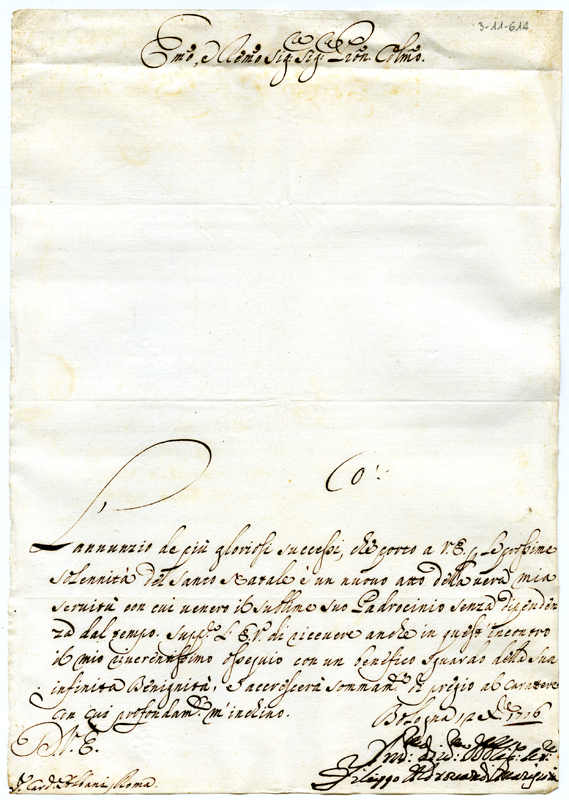 3-11-614
Emo, e Rmo Sig.re Sig.re Pron Colmo.
L'annunzio de più gloriosi successi, che porto a V.E. p le prossime
solennità del Santo Natale è un nuovo atto della vera mia
servitù con cui venero il sublime suo Padrocinio senza dipenden
za dal tempo. Supp.co L'E.V. di ricevere anche in questo incontro
il mio riverentissimo ossequio con un benefico sguardo della Sua
infinita Benignità, e accrescerà sommam.te di pregio al Carattere
con cui profondam.te m'inchino.
Bologna 12 1716
D.V.E.
S.r Card. Albani, Roma.
Filippo